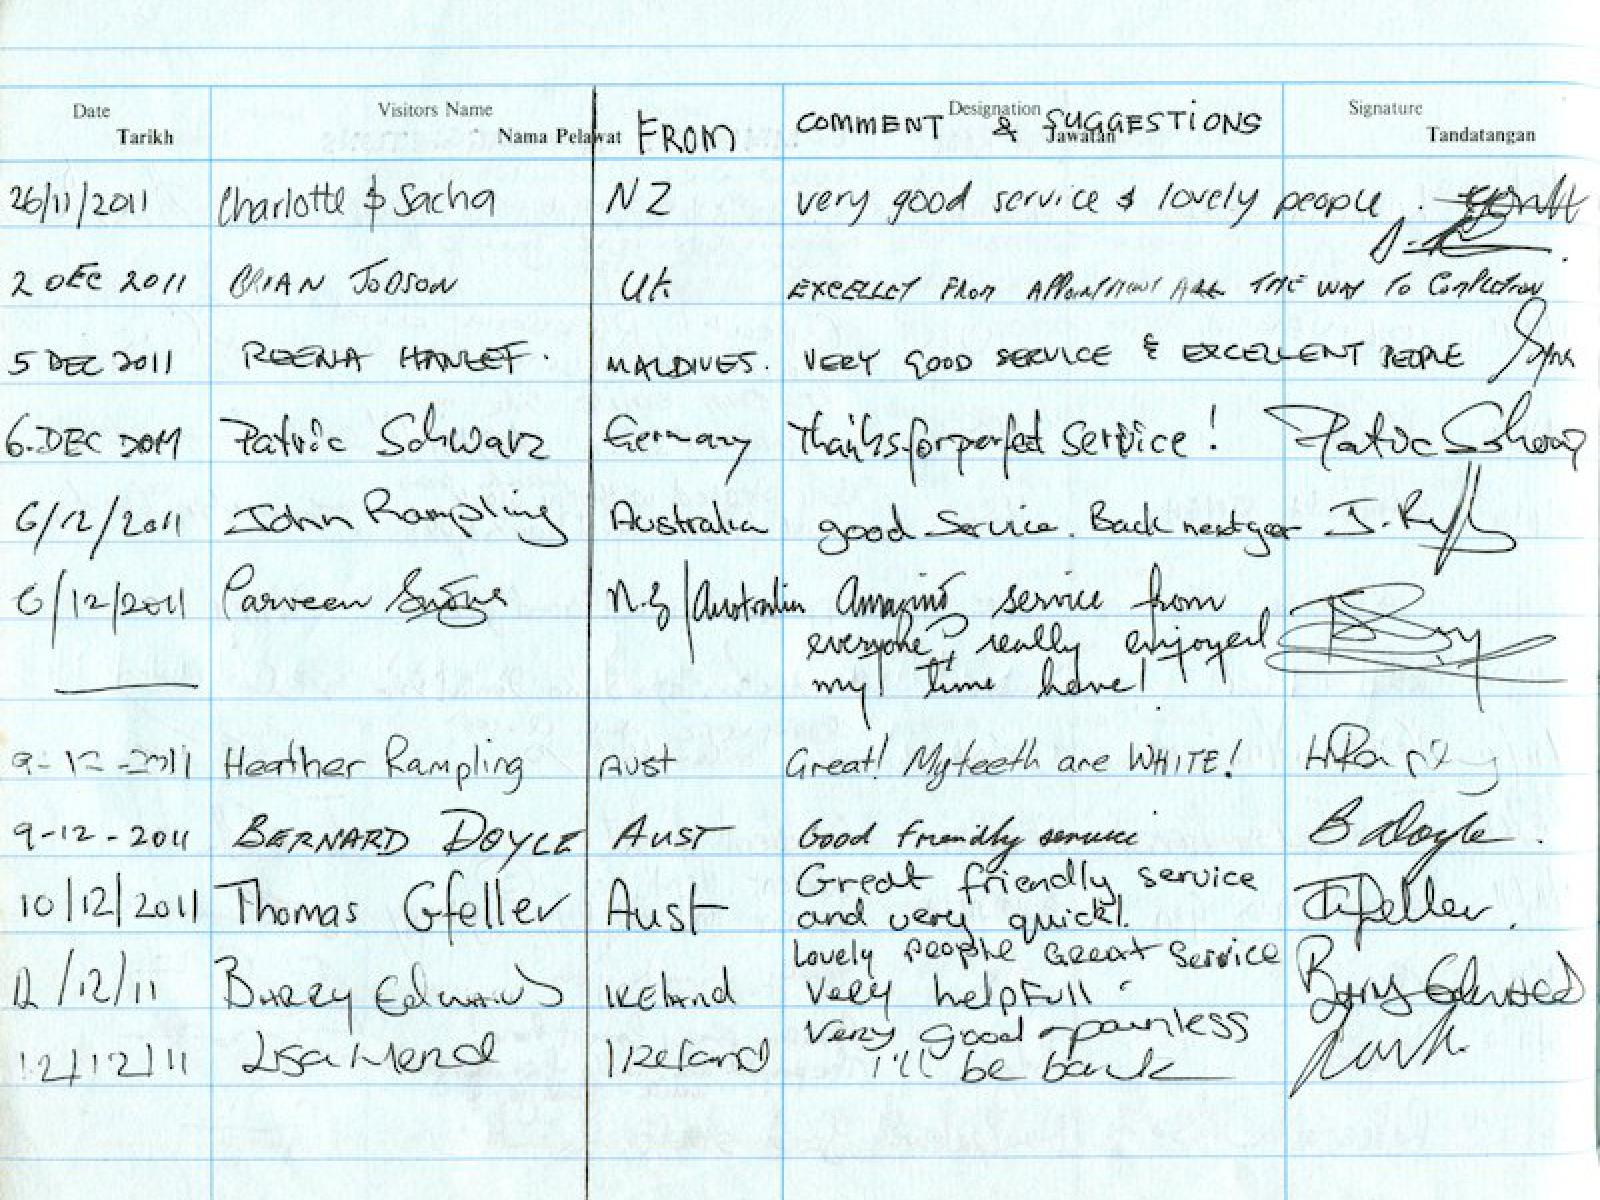 Date Visitors Name Designation Signature
Tarikh Nama Pelawat FROM COMMENT & SUGGESTIONS Jawatan Tandatangan
26/11/2011 Charlotte & Sacha NZ very good service & lovely people.
2 DEC 2011 BRIAN JODSON UK EXCELLET FROM APPOINTMENT ALL THE WAY TO COMPLETION
5 DEC 2011 REENA HANEEF. MALDIVES. VERY GOOD SERVICE & EXCELLENT PEOPLE
6.DEC 2011 Patric Schwarz Germany Thanks for perfect service! Patric Schwarz
6/12/2011 John Rampling Australia good Service. Back next year
6/12/2011 Parveen N.Z/Australia Amazing service from
everyone really enjoyed
my time here!
9-12-2011 Heather Rampling Aust Great! My teeth are WHITE! H Rampling
9-12-2011 BERNARD DOYLE AUST Good friendly service B Doyle.
10/12/2011 Thomas Gfeller Aust Great friendly service
and very quick!. TGfeller.
12/12/11 Barry Edwards IReland Lovely People Great Service
very helpfull Barry Edwards
12/12/11 Lisa Merid IReland Very Good + painless
I'll be back